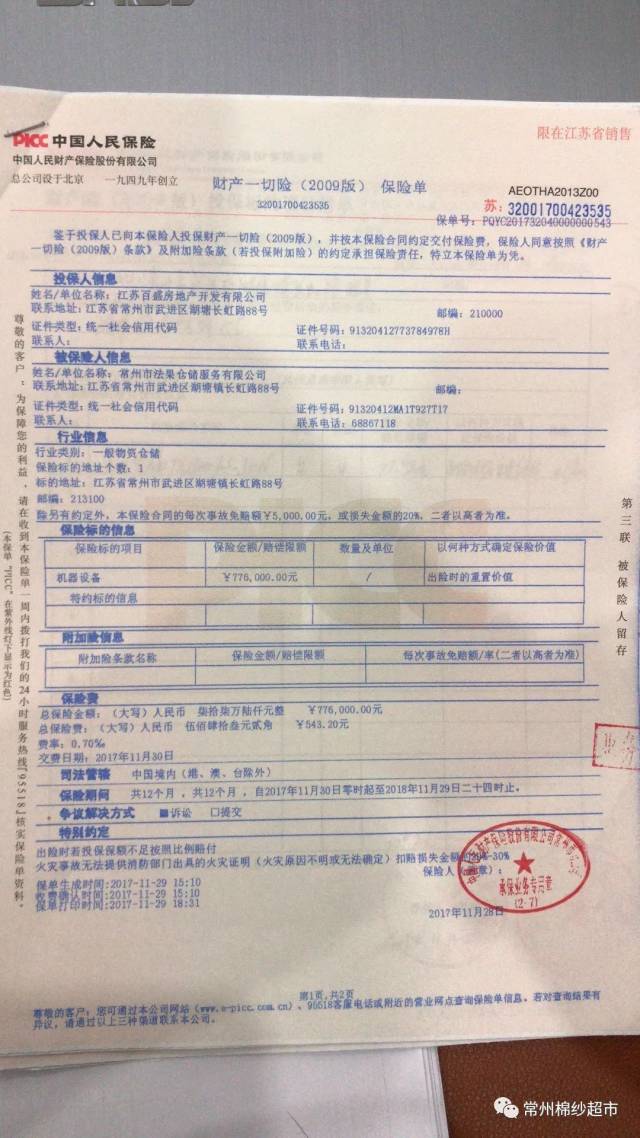 PICC 中国人民保险
限在江苏省销售
中国人民财产保险股份有限公司
总公司设于北京 一九四九年创立
财产一切险（2009版） 保险单
AEOTHA2013Z00
32001700423535
苏：32001700423535
保单号：PQYC201732040000000543
鉴于投保人已向本保险人投保财产一切险（2009版），并按本保险合同约定交付保险费，保险人同意按照《财产
一切险（2009版）条款》及附加险条款（若投保附加险）的约定承担保险责任，特立本保险单为凭。
投保人信息
姓名/单位名称：江苏百盛房地产开发有限公司
联系地址：江苏省常州市武进区湖塘长虹路88号 邮编：210000
证件类型：统一社会信用代码 证件号码：91320412773784978H
联系人： 联系电话：
被保险人信息
姓名/单位名称：常州市法果仓储服务有限公司
联系地址：江苏省常州市武进区湖塘镇长虹路88号 邮编：
证件类型：统一社会信用代码 证件号码：91320412MA1T927T17
联系人： 联系电话：68867118
行业信息
行业类别：一般物资仓储
保险标的地址个数：1
标的地址：江苏省常州市武进区湖塘镇长虹路88号
邮编：213100
除另有约定外，本保险合同的每次事故免赔额￥5,000.00元，或损失金额的20%，二者以高者为准。
保险标的信息
保险标的项目 保险金额/赔偿限额 数量及单位 以何种方式确定保险价值
机器设备 ￥776,000.00元 / 出险时的重置价值
特约标的信息
附加险信息
附加险条款名称 保险金额/赔偿限额 每次事故免赔额/率(二者以高者为准)
保险费
总保险金额：（大写）人民币 柒拾柒万陆仟元整 ￥776,000.00元
总保险费：（大写）人民币 伍佰肆拾叁元贰角 ￥543.20元
费率：0.70‰
交费日期：2017年11月30日
司法管辖 中国境内（港、澳、台除外）
保险期间 共12个月，共12个月，自2017年11月30日零时起至2018年11月29日二十四时止。
争议解决方式 ■诉讼 □提交
特别约定
出险时若投保保额不足按照比例赔付
火灾事故无法提供消防部门出具的火灾证明（火灾原因不明或无法确定）扣赔损失金额的20%-30%
保单生成时间:2017-11-29 15:10
收费确认时间:2017-11-29 15:10
保单打印时间:2017-11-29 18:31
保险人（ 章）：
承保业务专用章
(2-7)
2017年11月28日
第1页,共2页
尊敬的客户：您可通过本公司网站（www.e-picc.com.cn）、95518客服电话或附近的营业网点查询保险单信息。若对查询结果有
异议，请通过以上三种渠道联系本公司。
尊敬的客户：为保障您的利益，请在收到本保险单一周内拨打我们的24小时服务热线『95518』核实保险单资料。
(本保单“PICC”在紫外线灯下显示为红色)
第三联 被保险人留存
常州棉纱超市